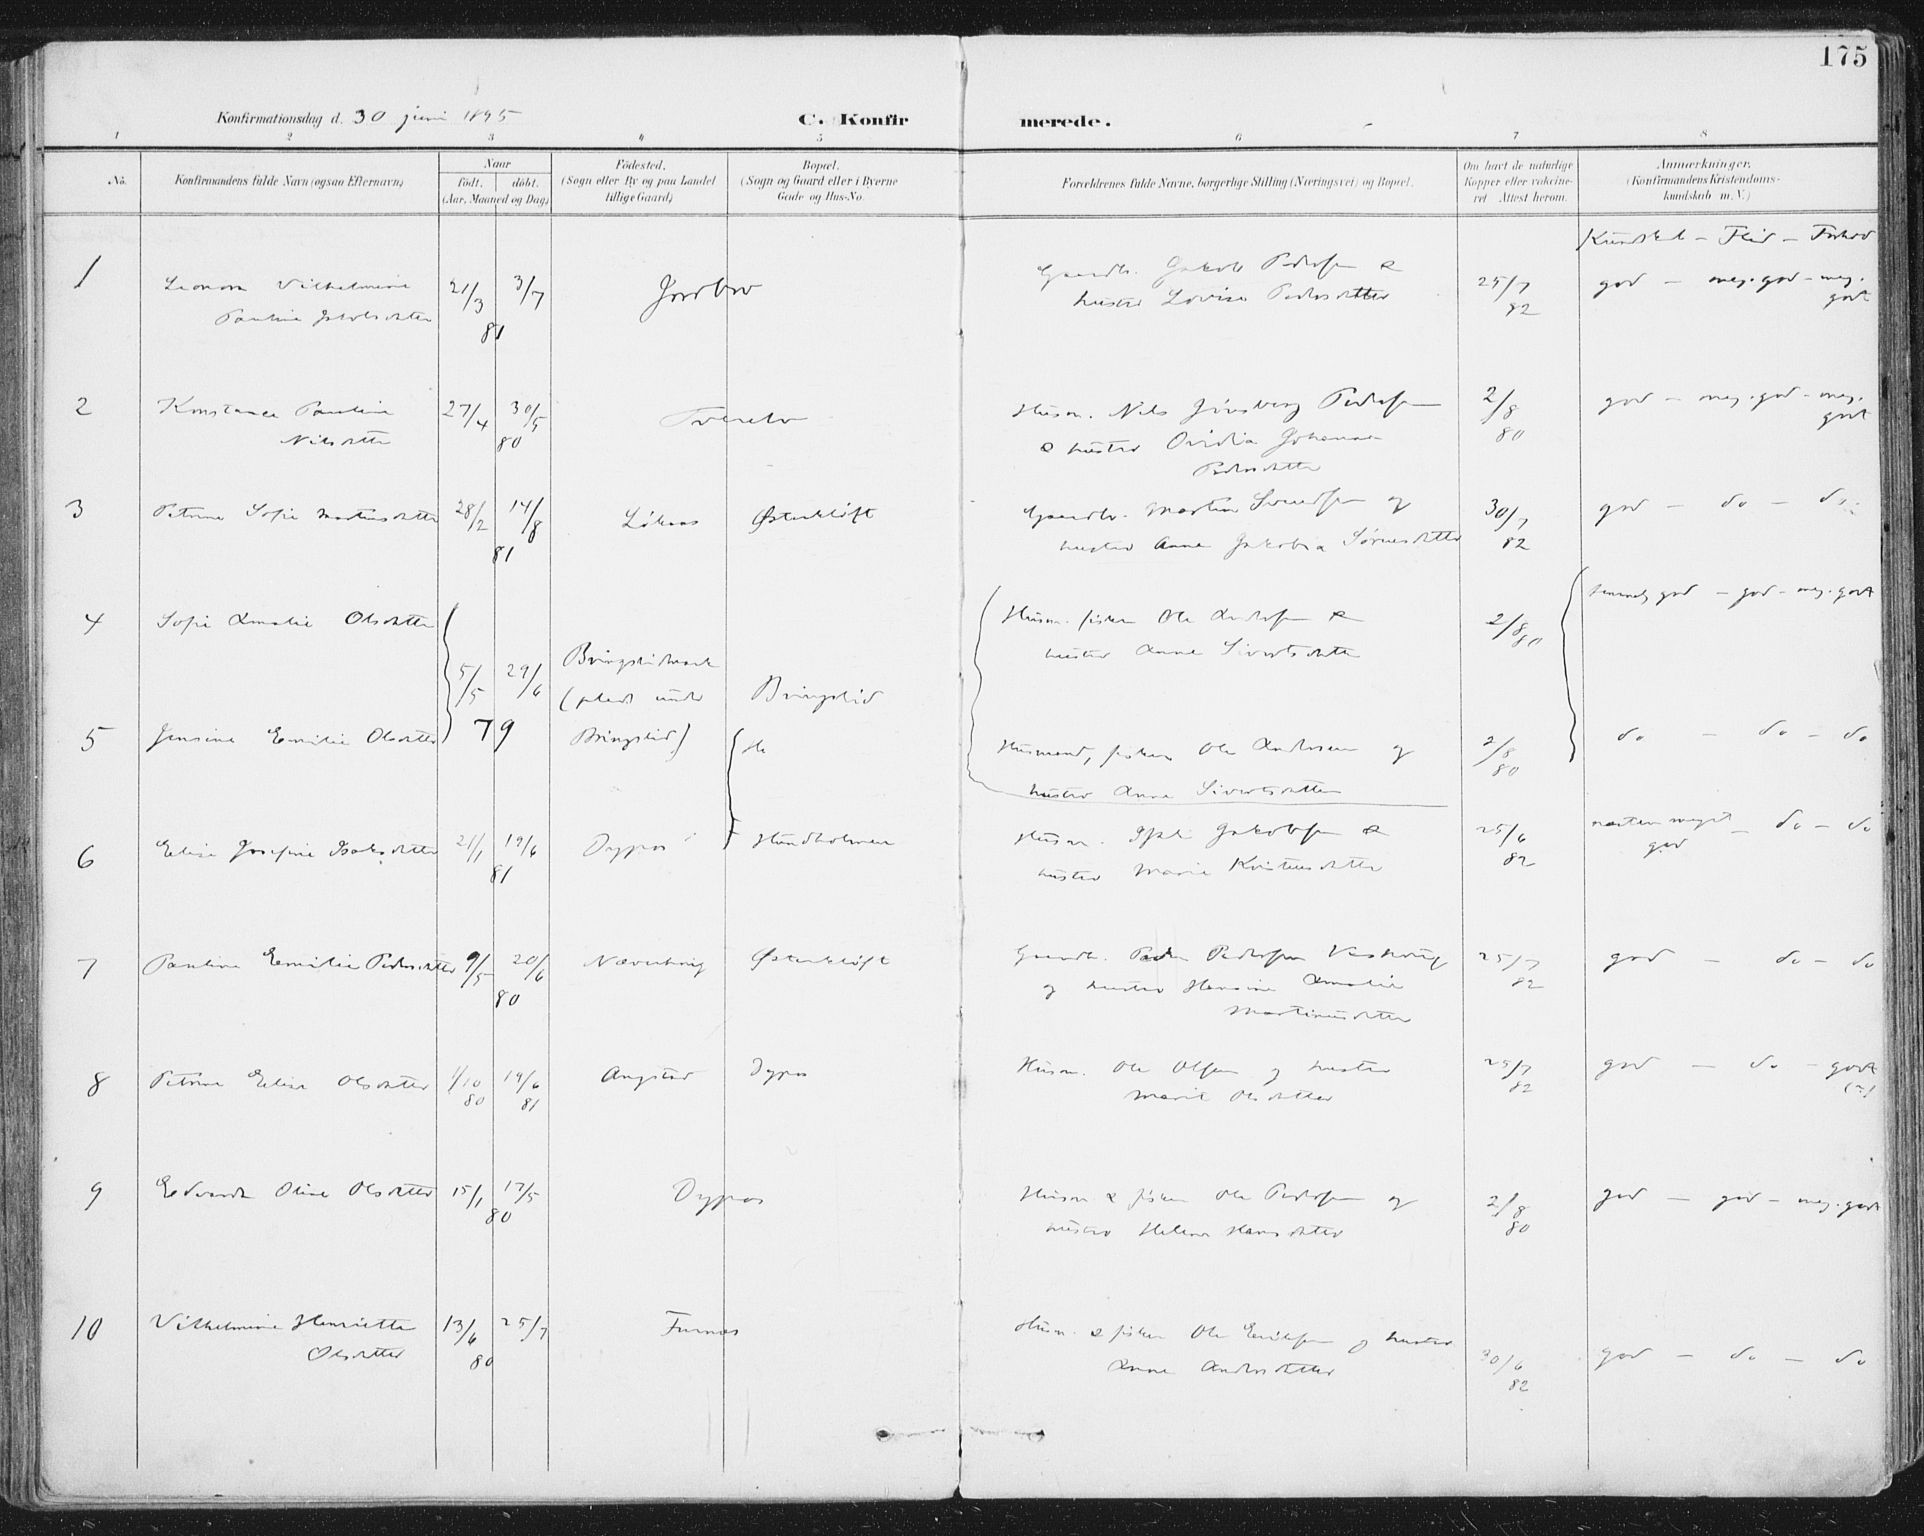 175
Konfirmationsdag d. 30 juni 1895
C. Konfirmerede.
1 2 3 4 5 6 7 8
No.
Konfirmandens fulde Navn (ogsaa Efternavn)
Naar
født. døbt.
(Aar, Maaned og Dag)
Fødested.
(Sogn eller By og paa Landet
tillige Gaard)
Bopæl.
(Sogn og Gaard eller i Byerne
Gade og Hus-No.
Forældrenes fulde Navne, borgerlige Stilling (Næringsvei) og Bopæl.
Om havt de naturlige
Kopper eller vakcine-
ret Attest herom.
Anmærkninger.
(Konfirmandens Kristendoms-
kundskab m. V.)
Kundskab - Flid - Forhold
1 Leonora Vilhelmine 21/3 3/7
Pauline Jakobsdatter 81
Gaardb. Jakob Pedersen &
hustro Lovise Pedersdatter
25/7 82
god - meg. god - meg. godt
2 Konstance Pauline 27/4 30/5
Nilsdatter 80
Husm. Nils Pedersen
& hustro Ovidia Johanna
Pedersdatter
2/8 80
god - meg. god - meg. godt
3 Petrine Sofie Martinsdatter 28/2 14/8 81
Løkaas Østerkløft
Gaardb. Martin og
hustro Anne Jakobia Sørensdatter
30/7 82
god - do - do
4 Sofie Amalie Olsdatter
5/5 29/6 79
(plads under
Bringslid) Bringslid
Husm. fisker Ole Andersen &
hustru Anne Sivertsdatter
2/8 80
god - god - meg. godt
5 Jensine Emilie Olsdatter
Husmand, fisker Ole Andersen og
hustro Anne Sivertsdatter
2/8 80
do - do - do
6 Elise Josefine Isaksdatter 21/1 19/6 81
Dypos Hundholmen
Husm. Jakobsen &
hustro Marie Kristensdatter
25/6 82
næsten meget god - do - do
7 Pauline Emilie Pedersdatter 9/5 20/6 80
Næverhaug Østerkløft
Gaardb. Peder Pedersen
og hustro Hansine Amalie
Martinusdatter
25/7 82
god - do - do
8 Petrine Elise Olsdatter 1/10 80 19/6 81
Angstad Dypos
Husm. Ole Olsen og hustro
Marit Olsdatter
25/7 82
god - do - godt
9 Edvarda Oline Olsdatter 15/1 17/5 80
Dypos
Husm & fisker Ole Pedersen og
hustro Helena Hansdatter
2/8 80
god - god - meg. godt
10 Vilhelmine Henriette 13/6 25/7
Olsdatter 80
Furnes
Husm. & fisker Ole Eriksen og hustro
Anne Andersdatter
30/6 82
god - do - do